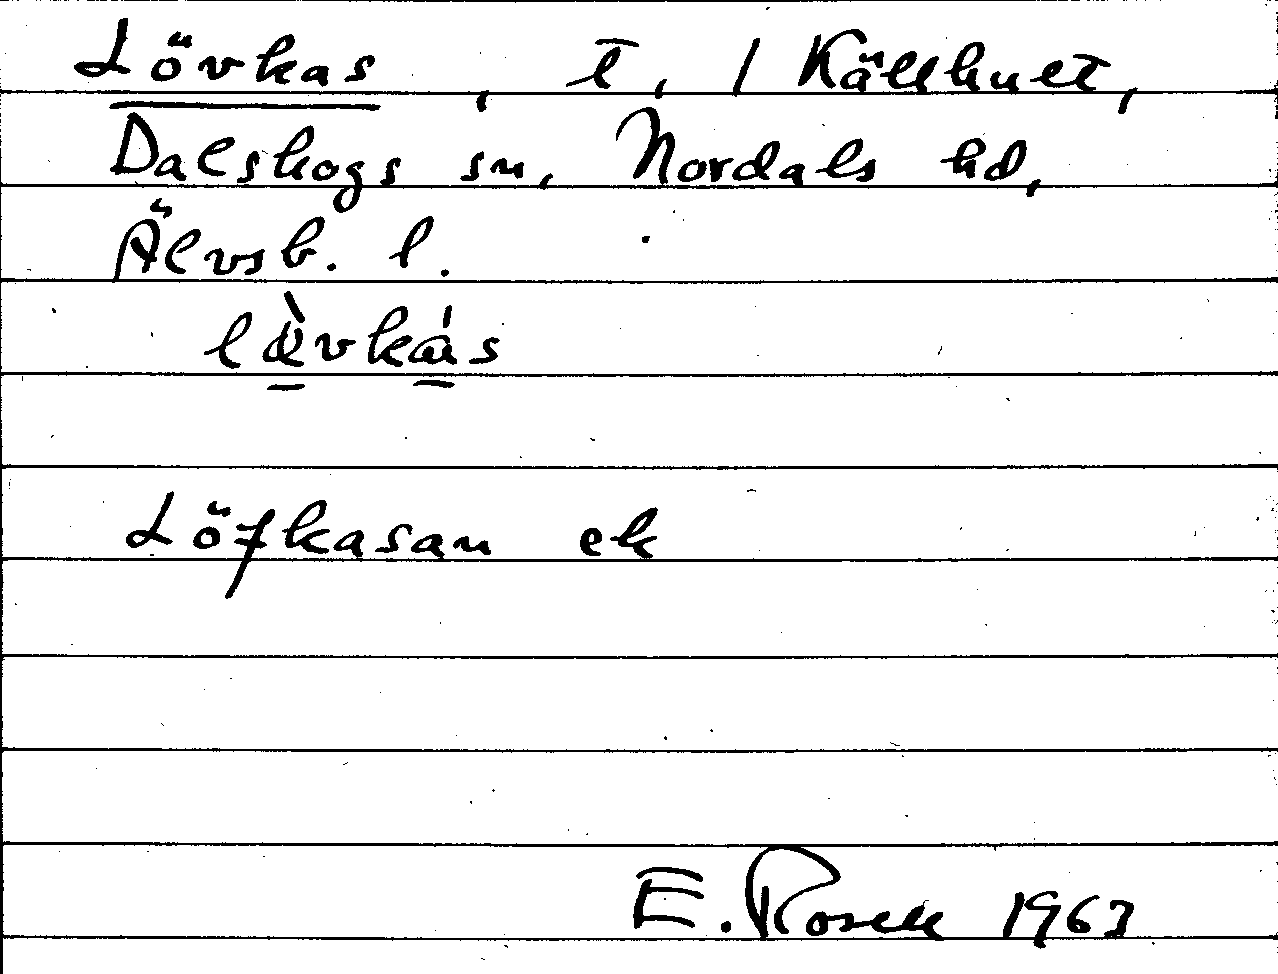 Lövkas, t, 1 Källhult,
Dalskogs sn, Nordals hd,
Älvsb. l.
lö̀vkás
Löfkasan ek
E. Rosell 1963